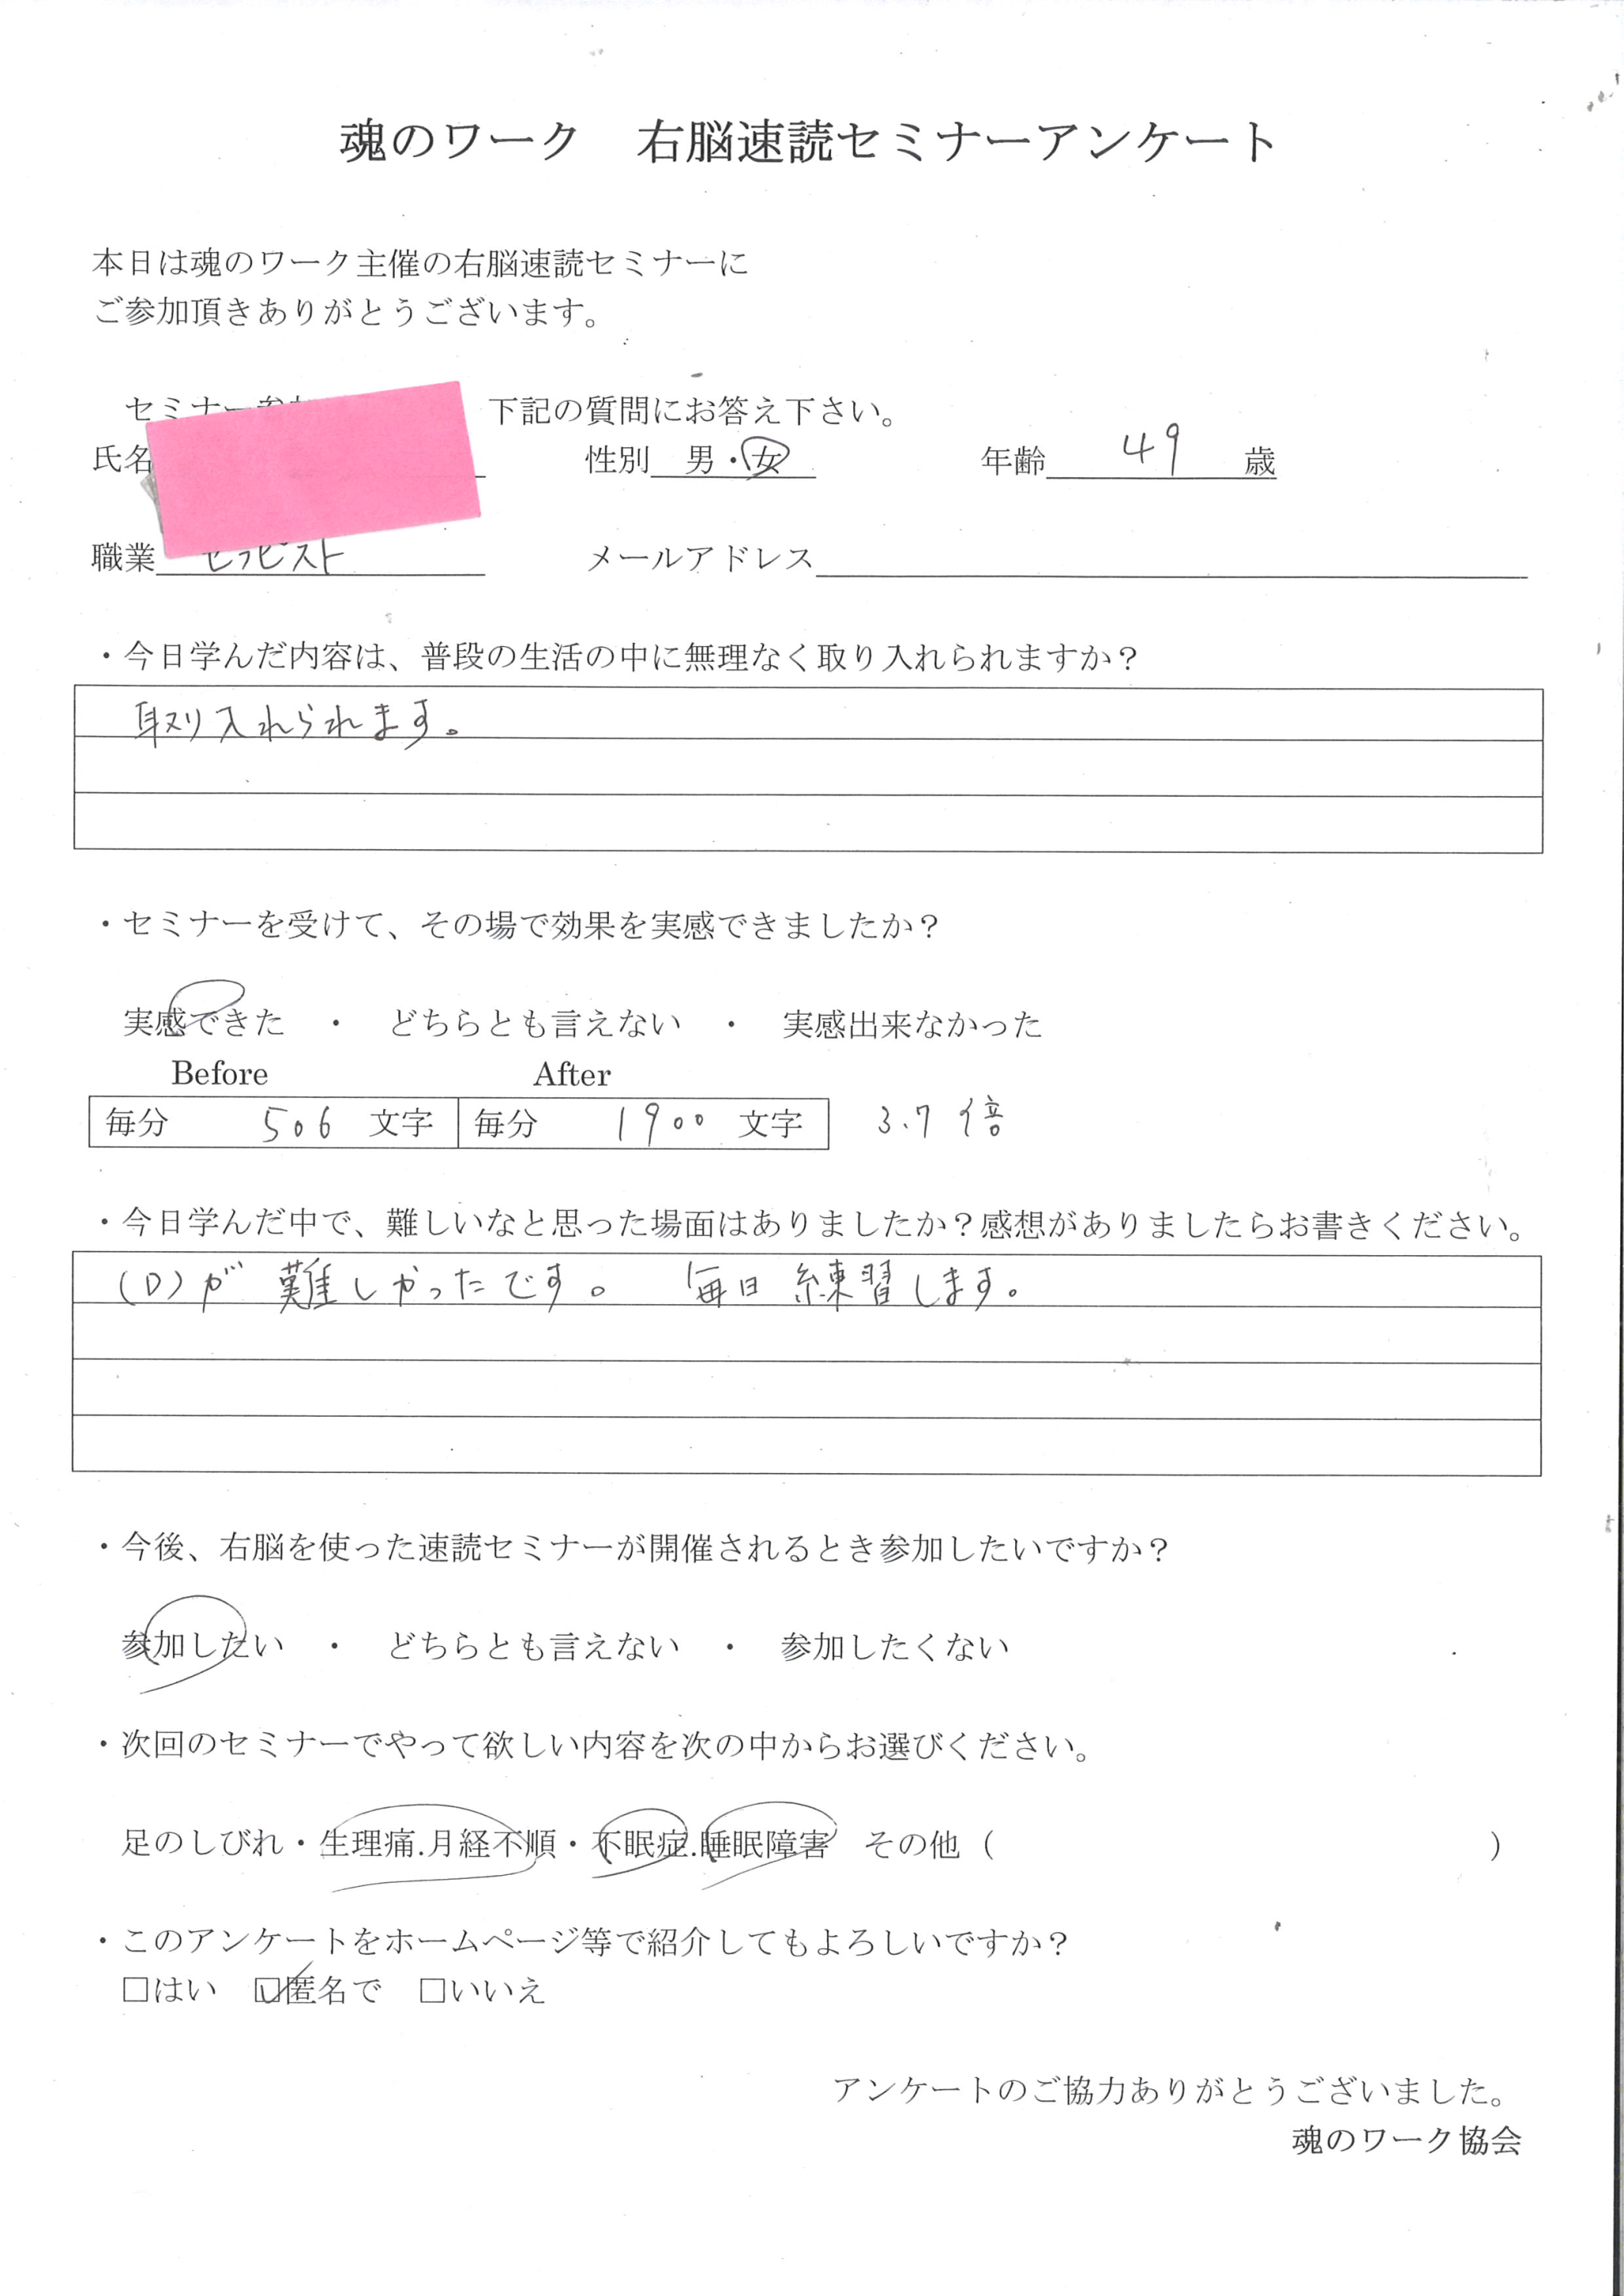 魂のワーク 右脳速読セミナーアンケート
本日は魂のワーク主催の右脳速読セミナーに
ご参加頂きありがとうございます。
セミナー参 下記の質問にお答え下さい。
氏名 性別 男・女 年齢 49 歳
職業 セラピスト メールアドレス
・今日学んだ内容は、普段の生活の中に無理なく取り入れられますか？
取り入れられます。
・セミナーを受けて、その場で効果を実感できましたか？
実感できた ・ どちらとも言えない ・ 実感出来なかった
Before After
毎分 506 文字 毎分 1900 文字 3.7倍
・今日学んだ中で、難しいなと思った場面はありましたか？感想がありましたらお書きください。
(D)が難しかったです。 毎日練習します。
・今後、右脳を使った速読セミナーが開催されるとき参加したいですか？
参加したい ・ どちらとも言えない ・ 参加したくない
・次回のセミナーでやって欲しい内容を次の中からお選びください。
足のしびれ・生理痛.月経不順・不眠症.睡眠障害 その他（ ）
・このアンケートをホームページ等で紹介してもよろしいですか？
□はい ☑匿名で □いいえ
アンケートのご協力ありがとうございました。
魂のワーク協会